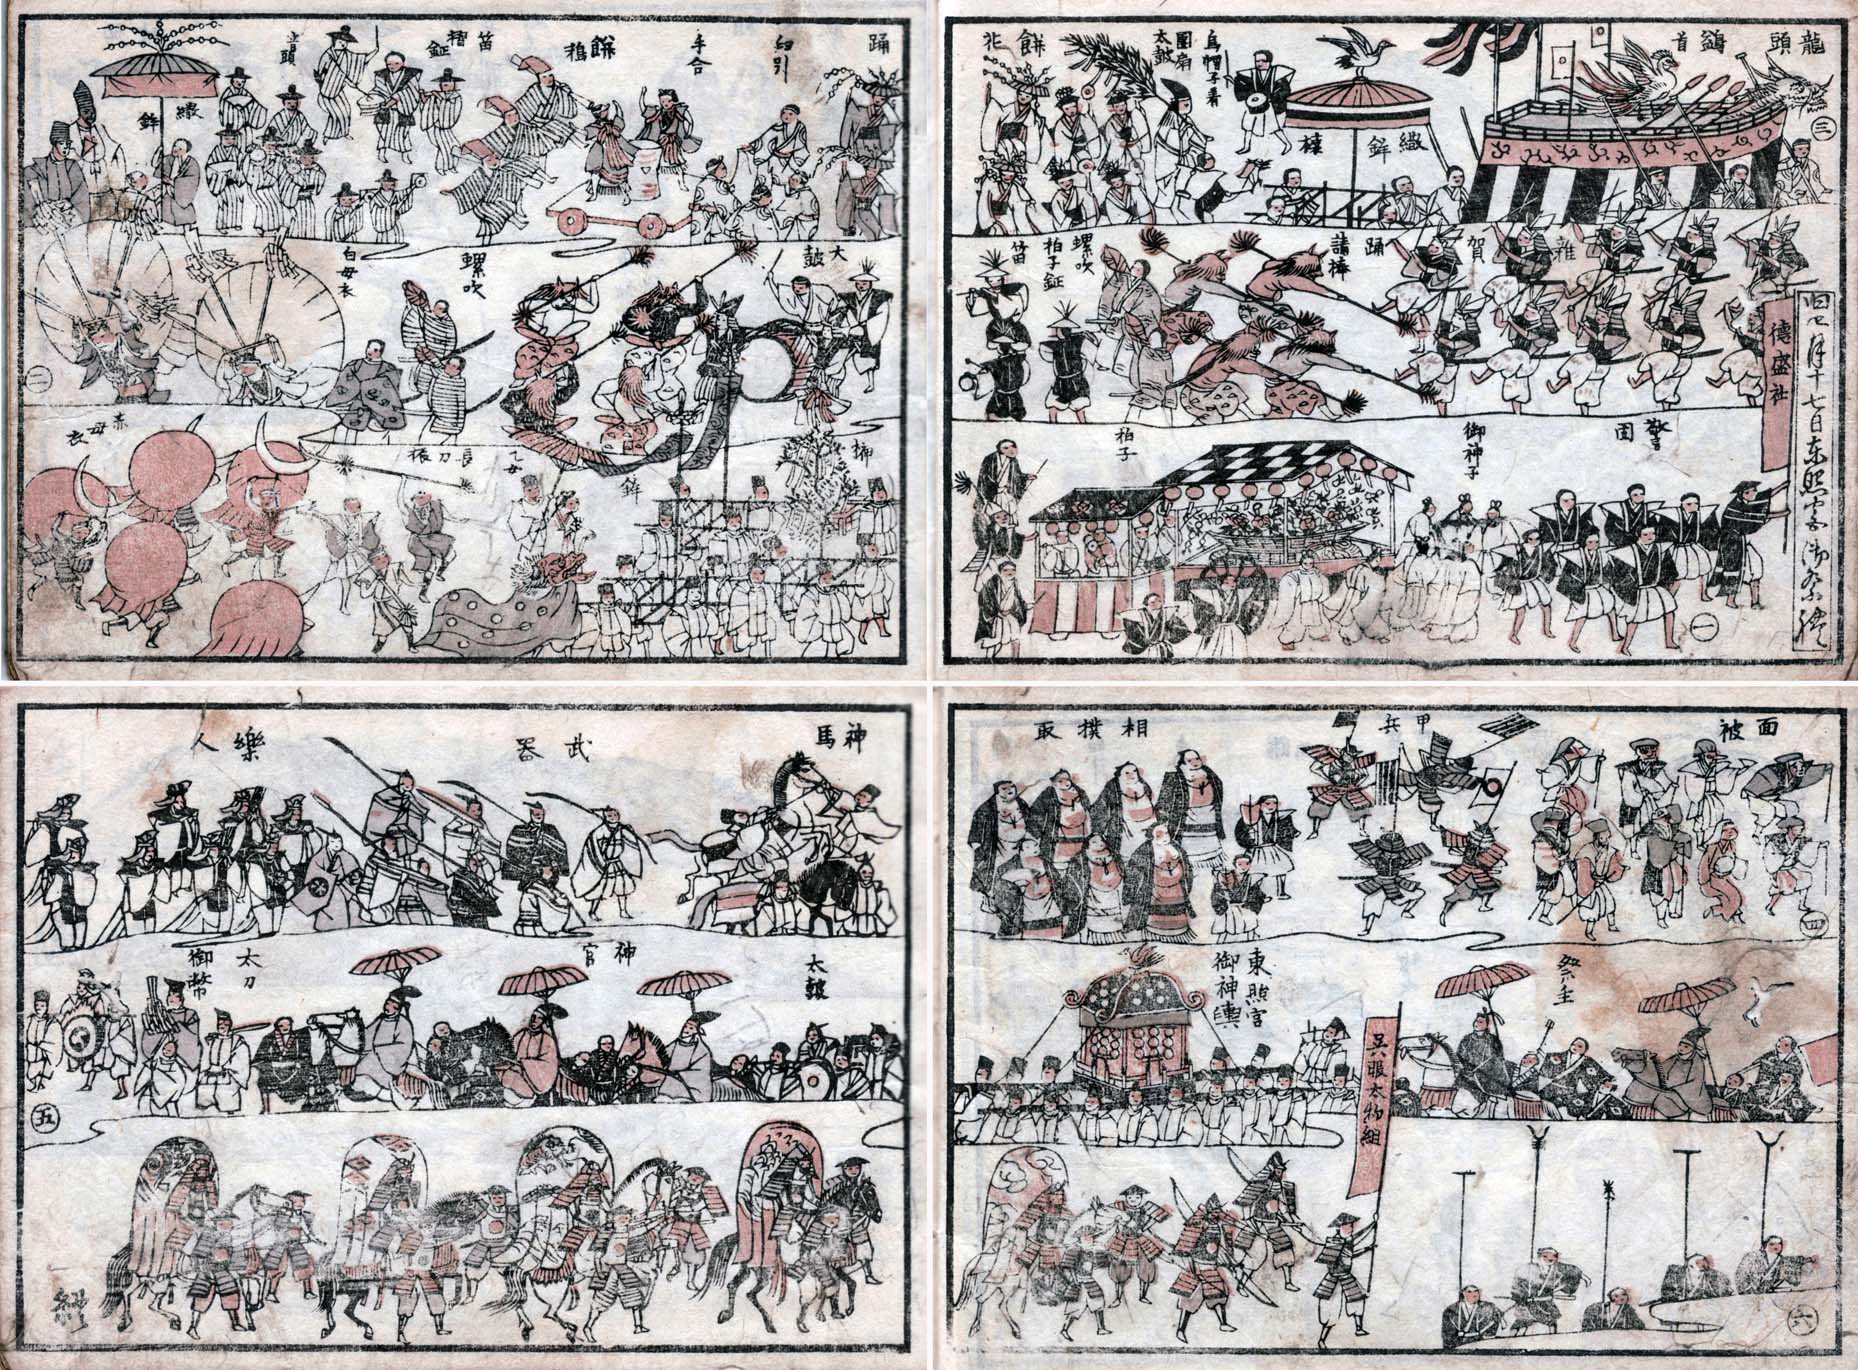 旧四月十七日東照宮御祭禮
徳盛社
警固
御神子
拍子
一
雑賀踊
請棒
螺吹
拍子鉦
笛
龍頭
鷁首
三
繖鉾
棒
烏帽子着
團扇太鼓
餅花
踊
臼引
手合
餅搗
笛
鉦
音頭
繖鉾
太鼓
螺吹
白母衣
二
鉾
乙女
長刀振
赤母衣
面被
甲兵
相撲取
四
祭主
東照宮
御神輿
呉服太物組
六
神馬
武器
樂人
太鼓
神官
太刀
御幣
五